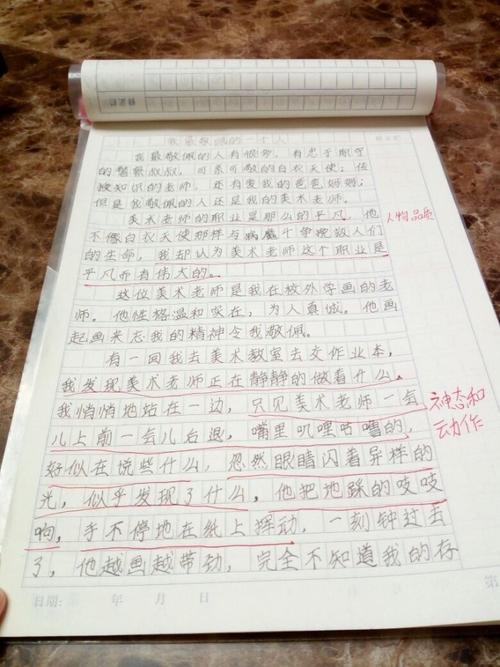 我最敬佩的一个人
我最敬佩的人有很多，有忠于职守
的警察叔叔，可亲可敬的白衣天使；传
授知识的老师，还有爱我的爸爸妈妈；
但是我最敬佩的人还是我的美术老师。
美术老师的职业是那么的平凡，他
不像白衣天使那样与病魔斗争挽救人们
的生命，我却认为美术老师这个职业是
平凡而有伟大的。
人物品质
这位美术老师是我在校外学画的老
师。他性格温和实在，为人真诚。他画
起画来忘我的精神令我敬佩。
有一回我去美术教室去交作业本，
我发现美术老师正在静静的做着什么。
我悄悄地站在一边，只见美术老师一气
儿上前一气儿后退，嘴里叽里咕噜的，
神态和
动作
好似在说些什么，忽然眼睛闪着异样的
光，似乎发现了什么，他把地踩的吱吱
响，手不停地在纸上挥动，一刻钟过去
了，他越画越带劲，完全不知道我的存
日期： 年 月 日 第